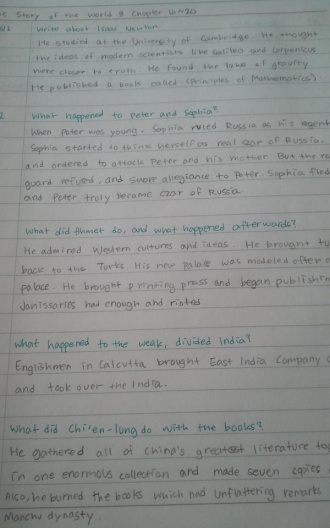 Story of the World 3 Chapter 16~20
Write about Isaac Newton
He studied at the University of Cambridge. He thought
the ideas of modern scientists like Galileo and Copernicus
were closer to truth. He found the laws of gravity
He published a book called (Principles of Mathematics)
What happened to Peter and Sophia?
When Peter was young, Sophia ruled Russia as his regent
Sophia started to think herself as real czar of Russia.
and ordered to attack Peter and his mother. But the
guard refused, and swore allegiance to Peter. Sophia fled
and Peter truly became czar of Russia.
What did Ahmet do, and what happened afterwards?
He admired Western cultures and ideas. He brought
back to the Turks. His new palace was modeled after
palace. He brought printing press and began
Janissaries had enough and rioted.
What happened to the weak, divided India?
Englishmen in Calcutta brought East India Company
and took over the India.
What did Chi'en-lung do with the books?
He gathered all of China's greatest literature
in one enormous collection and made seven copies
Also, he burned the books which had unflattering remarks
Manchu dynasty.